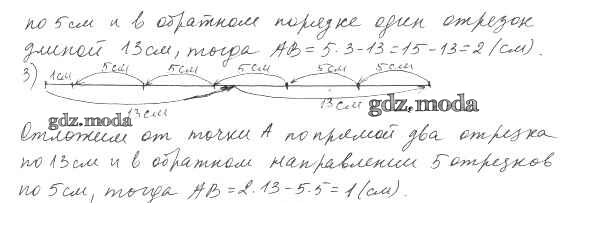 по 5 см и в обратном порядке один отрезок
длиной 13 см, тогда АВ = 5·3-13=15-13=2 (см).
3) 1см 5см 5см 5см 5см 5см
13см 13см
gdz.moda
gdz.moda
Отложим от точки А по прямой два отрезка
по 13 см и в обратном направлении 5 отрезков
по 5 см, тогда АВ = 2·13-5·5=1 (см).